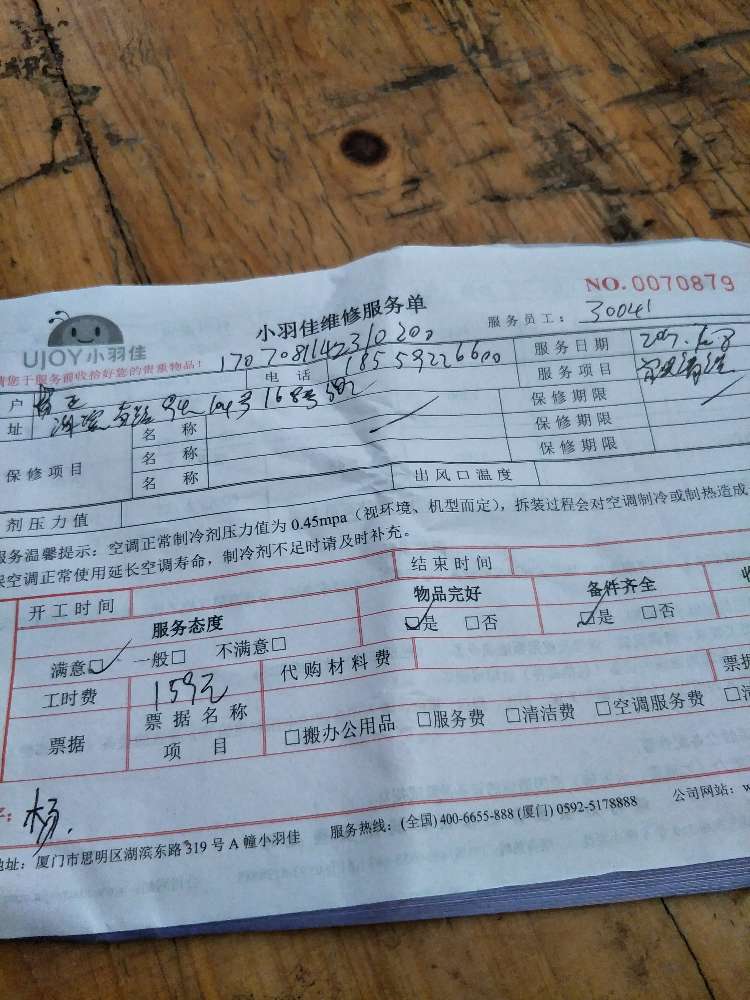 NO.0070879
小羽佳维修服务单
服务员工：30041
UJOY小羽佳
请您于服务前收拾好您的贵重物品！
1707081142310200
户
电 话 18559226600
服务日期
址
服务项目
保修项目
名 称
保修期限
名 称
保修期限
名 称
保修期限
剂压力值
出风口温度
服务温馨提示：空调正常制冷剂压力值为 0.45mpa（视环境、机型而定），拆装过程会对空调制冷或制热造成
保空调正常使用延长空调寿命，制冷剂不足时请及时补充。
开工时间
结束时间
服务态度
物品完好
备件齐全
满意□ 一般□ 不满意□
□是 □否
□是 □否
工时费 159元
代购材料费
票据
票据名称
票据
项 目
□搬办公用品 □服务费 □清洁费 □空调服务费
杨
地址：厦门市思明区湖滨东路 319 号 A 幢小羽佳 服务热线：(全国) 400-6655-888 (厦门) 0592-5178888 公司网站：w